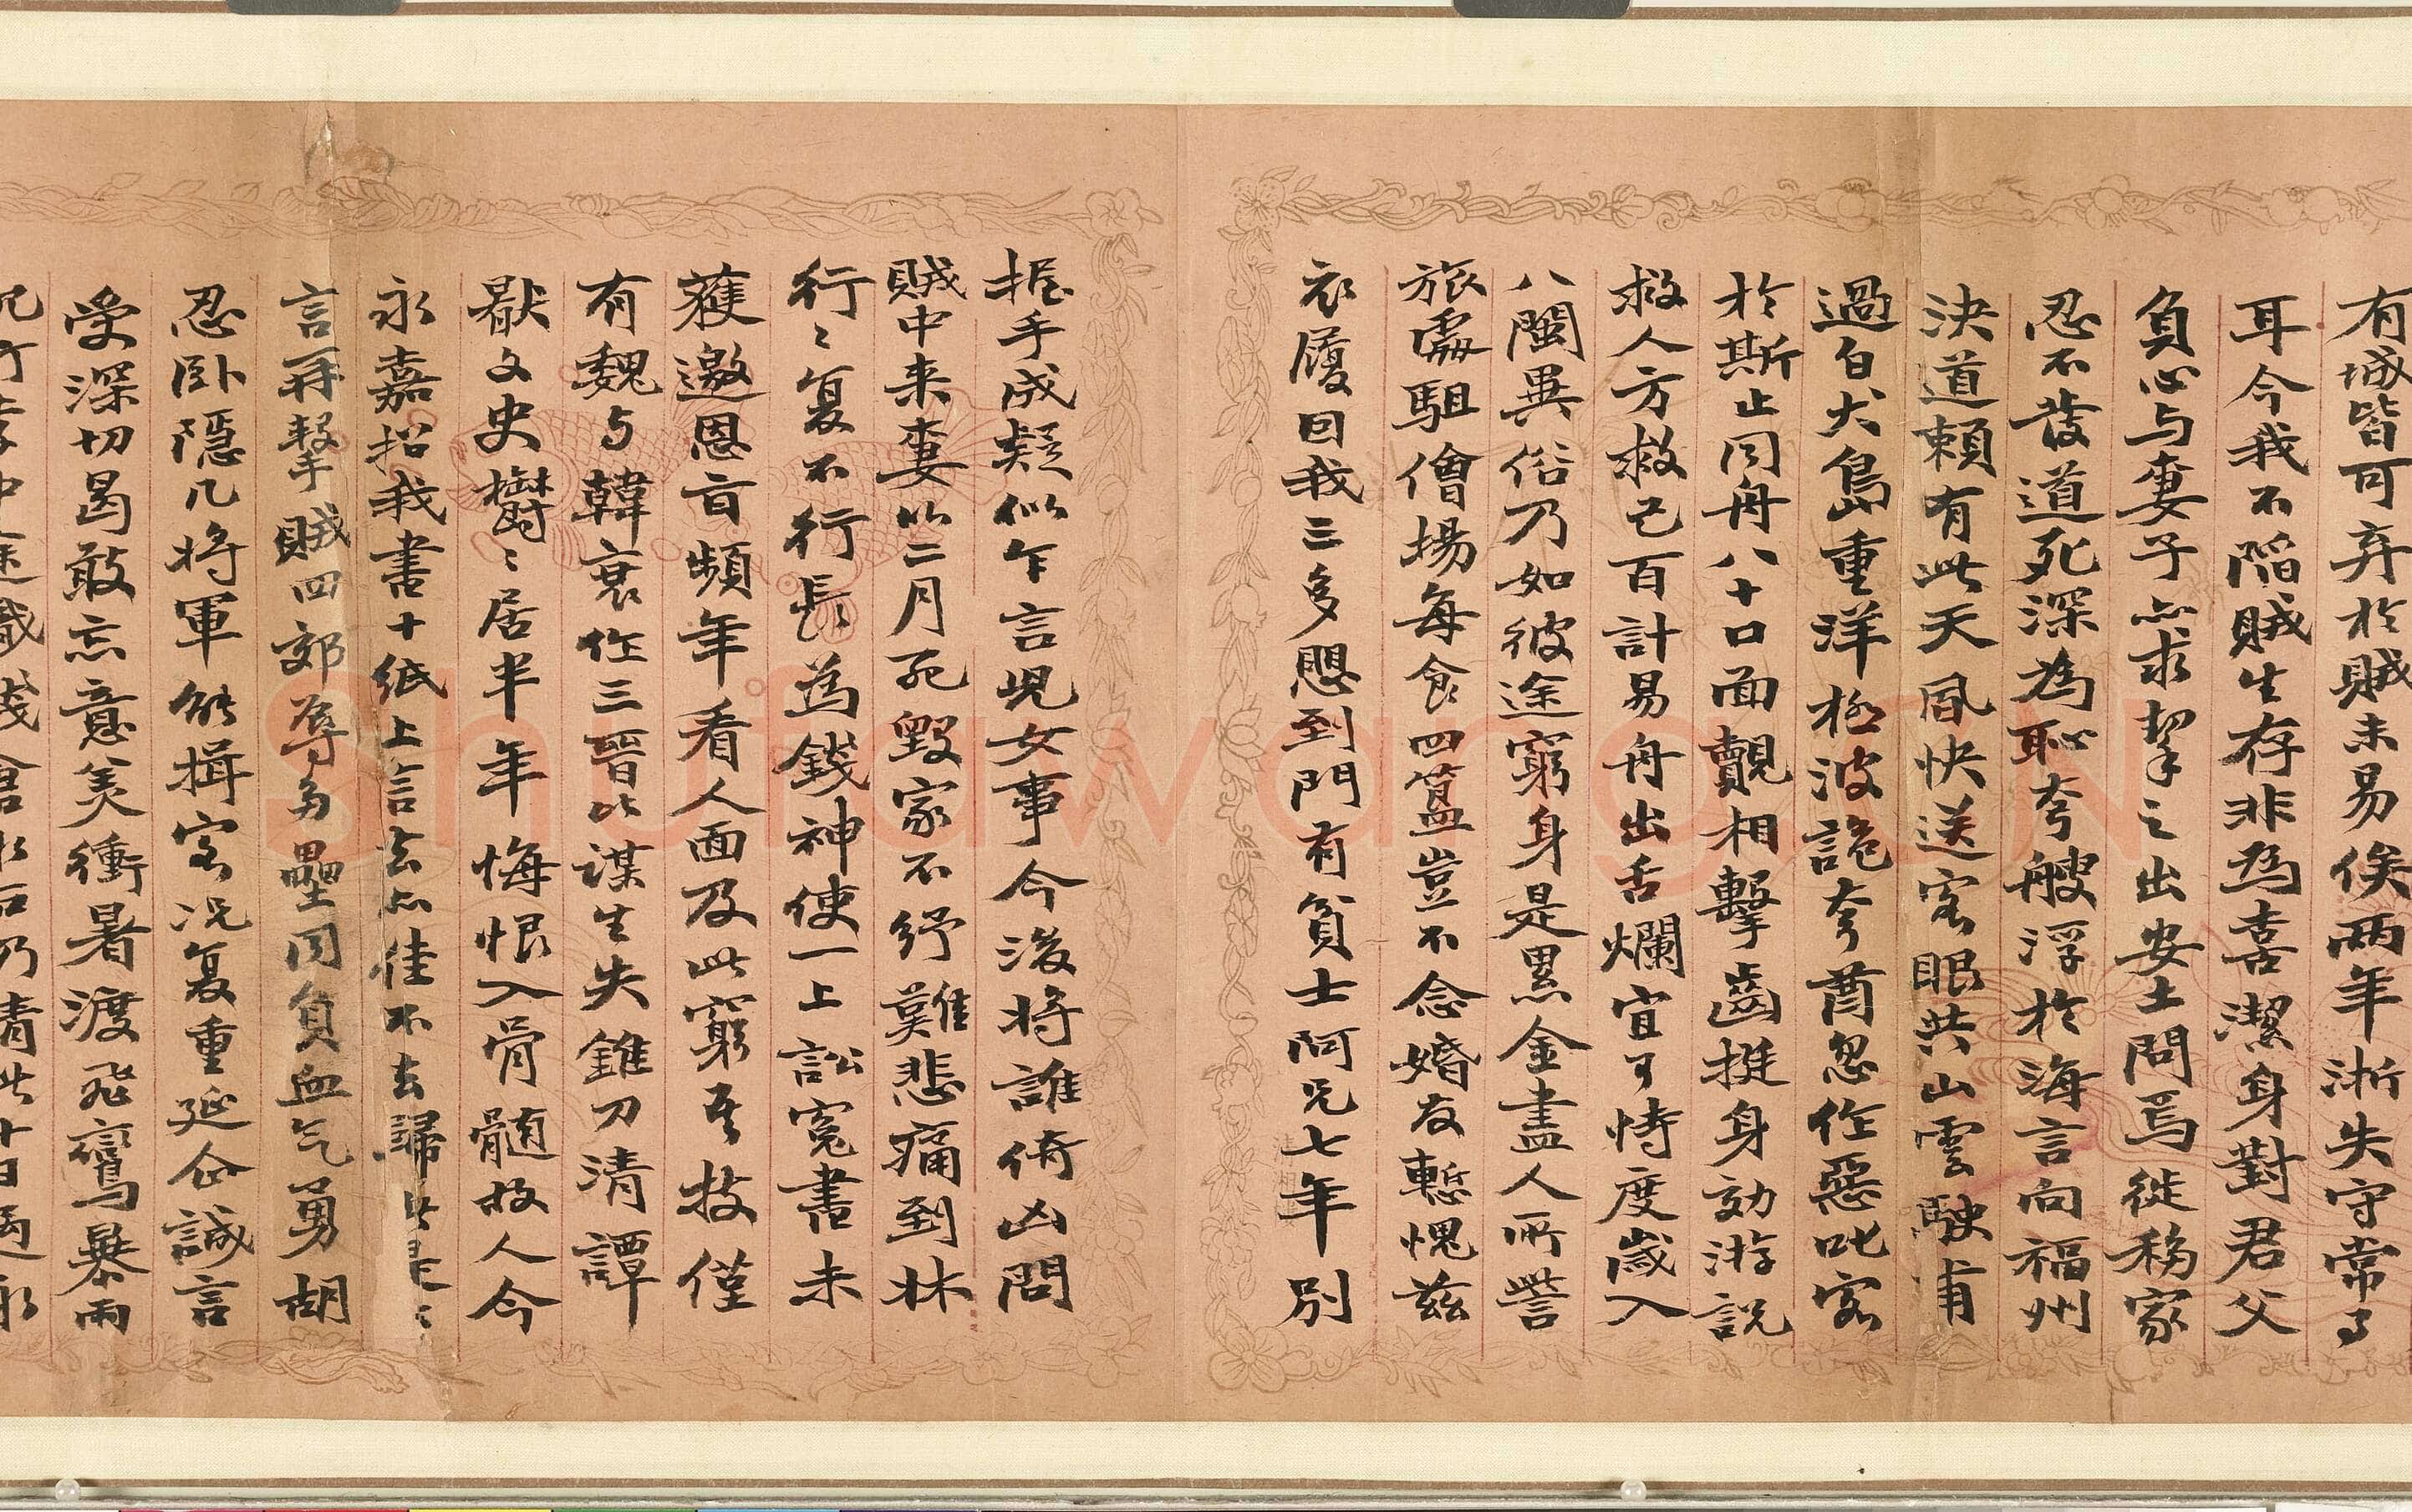 有城皆可弃於賊未易俟兩年淅失守常了
耳今我不陷賊生存非為喜潔身對君父
負心与妻子亦求挈之出安土問焉徙移家
忍不發道死深為恥夸艘浮於海言向福州
決道賴有此天風快送客眼共山雲駛甫
過白犬島重洋極波詭夸酋忽作惡叱客
於斯止同舟八十口面覿相擊齒挺身効游説
救人方救己百計易舟出舌爛宜可恃度歲入
八閩異俗乃如彼途窮身是累金盡人所訾
旅處駔儈場每食四簋豈不念婚友慙愧茲
衣履回我三多愳到門有貧士阿兄七年別
握手成疑似乍言兒女事今後將誰倚凶問
賊中来妻以二月死毀家不紓難悲痛到牀
行〻复不行長為錢神使一上訟寃書未
蒦邀恩旨頻年看人面及此窮吾技僅
有魏与韓衰作三晉比謀生失錐刀清譚
猒文史欝〻居半年悔恨入骨髓故人今
永嘉招我書十紙上言去亦佳不去歸
言再擊賊四郊辱多壘同負血气勇胡
忍卧隱几将軍能揖客况复重延企誠言
受深切曷敢忘意美衝暑渡飛鸞暴雨